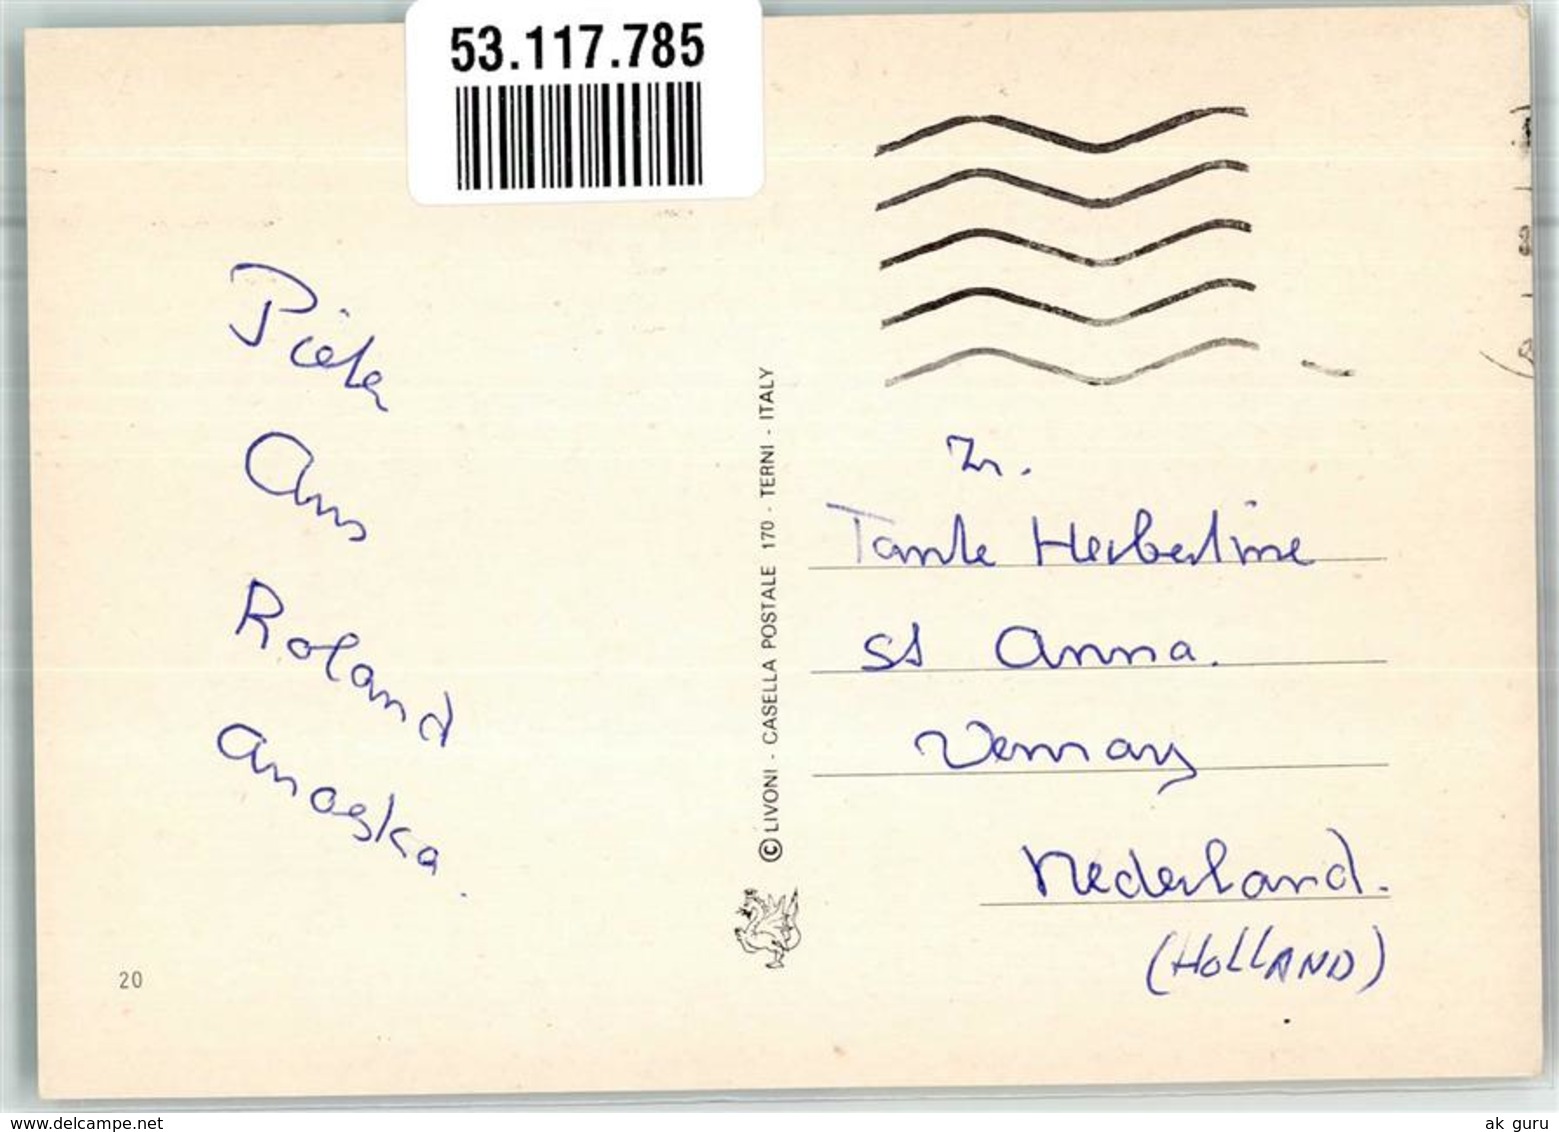 53.117.785
Pieta
Ans
Roland
Anoeska.
20
© LIVONI - CASELLA POSTALE 170 - TERNI - ITALY
Zr.
Tante Herbertine
St Anna.
Venray
Nederland.
(HOLLAND)
www.delcampe.net
ak_guru